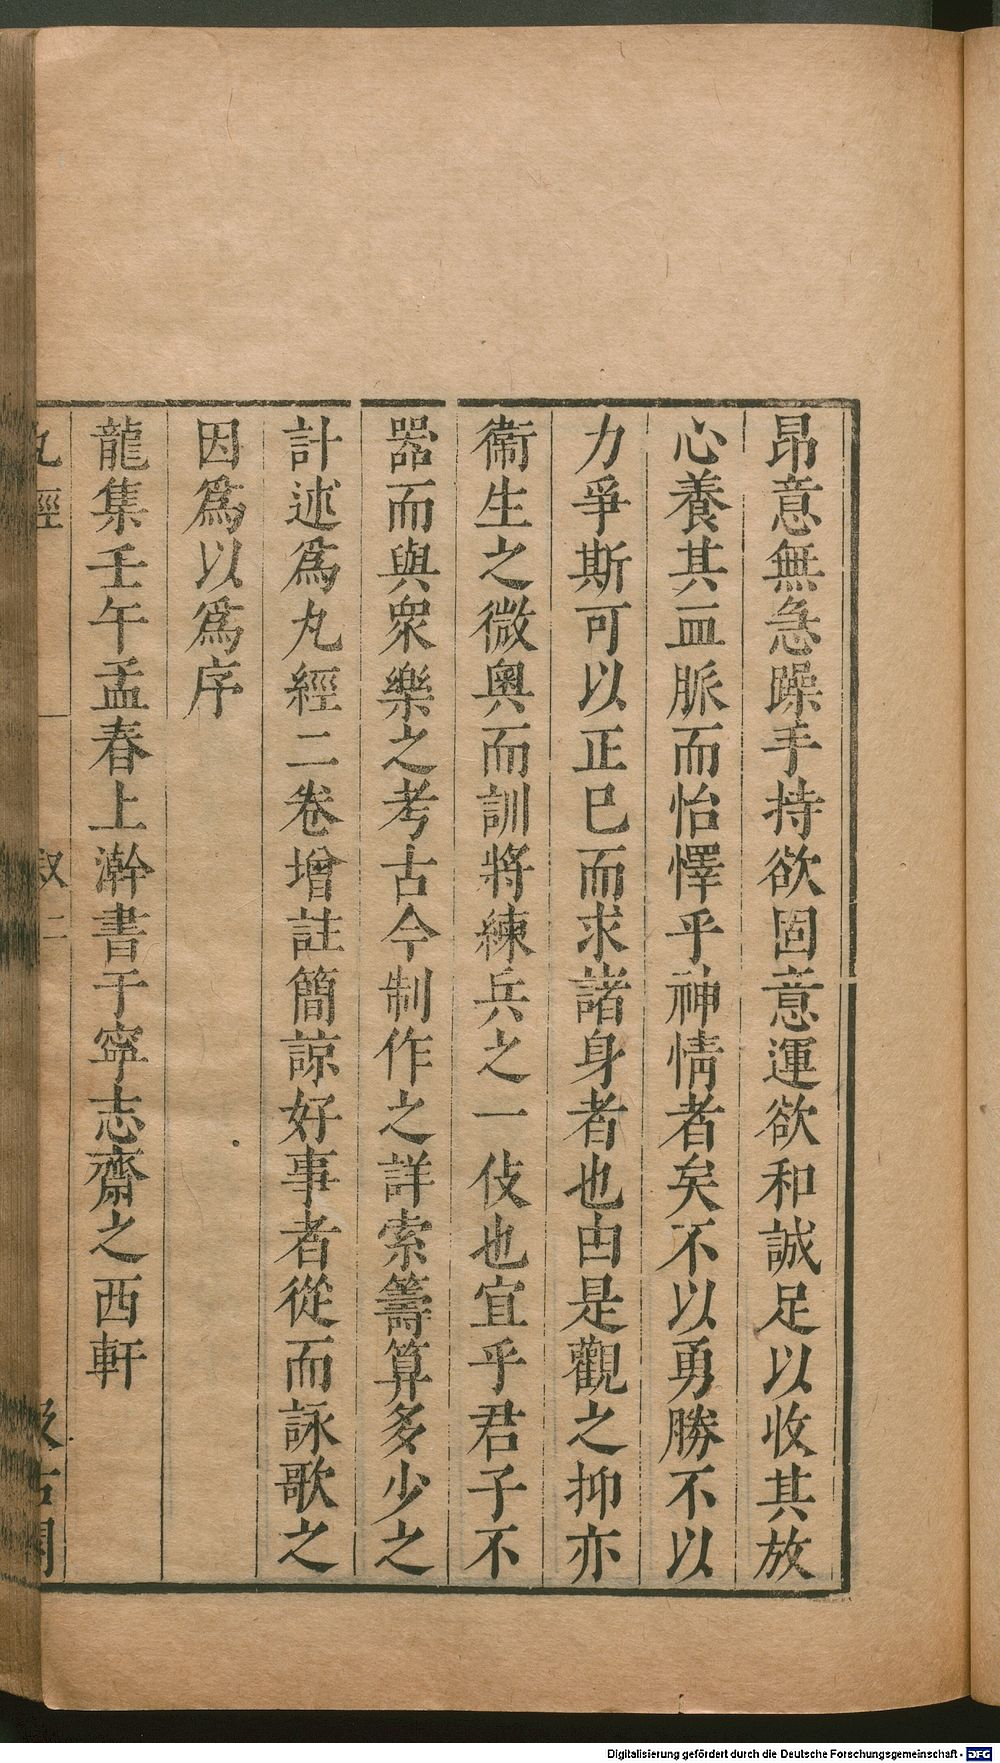 昂意無急躁手持欲固意運欲和誠足以收其放
心養其血脈而怡懌乎神情者矣不以勇勝不以
力爭斯可以正已而求諸身者也由是觀之抑亦
衞生之微奧而訓將練兵之一伎也宜乎君子不
器而與眾樂之考古今制作之詳索籌算多少之
計述爲丸經二卷增註簡諒好事者從而詠歌之
因爲以爲序
龍集壬午孟春上澣書于寧志齋之西軒
丸經 叙 二 汲古閣
Digitalisierung gefördert durch die Deutsche Forschungsgemeinschaft - DFG